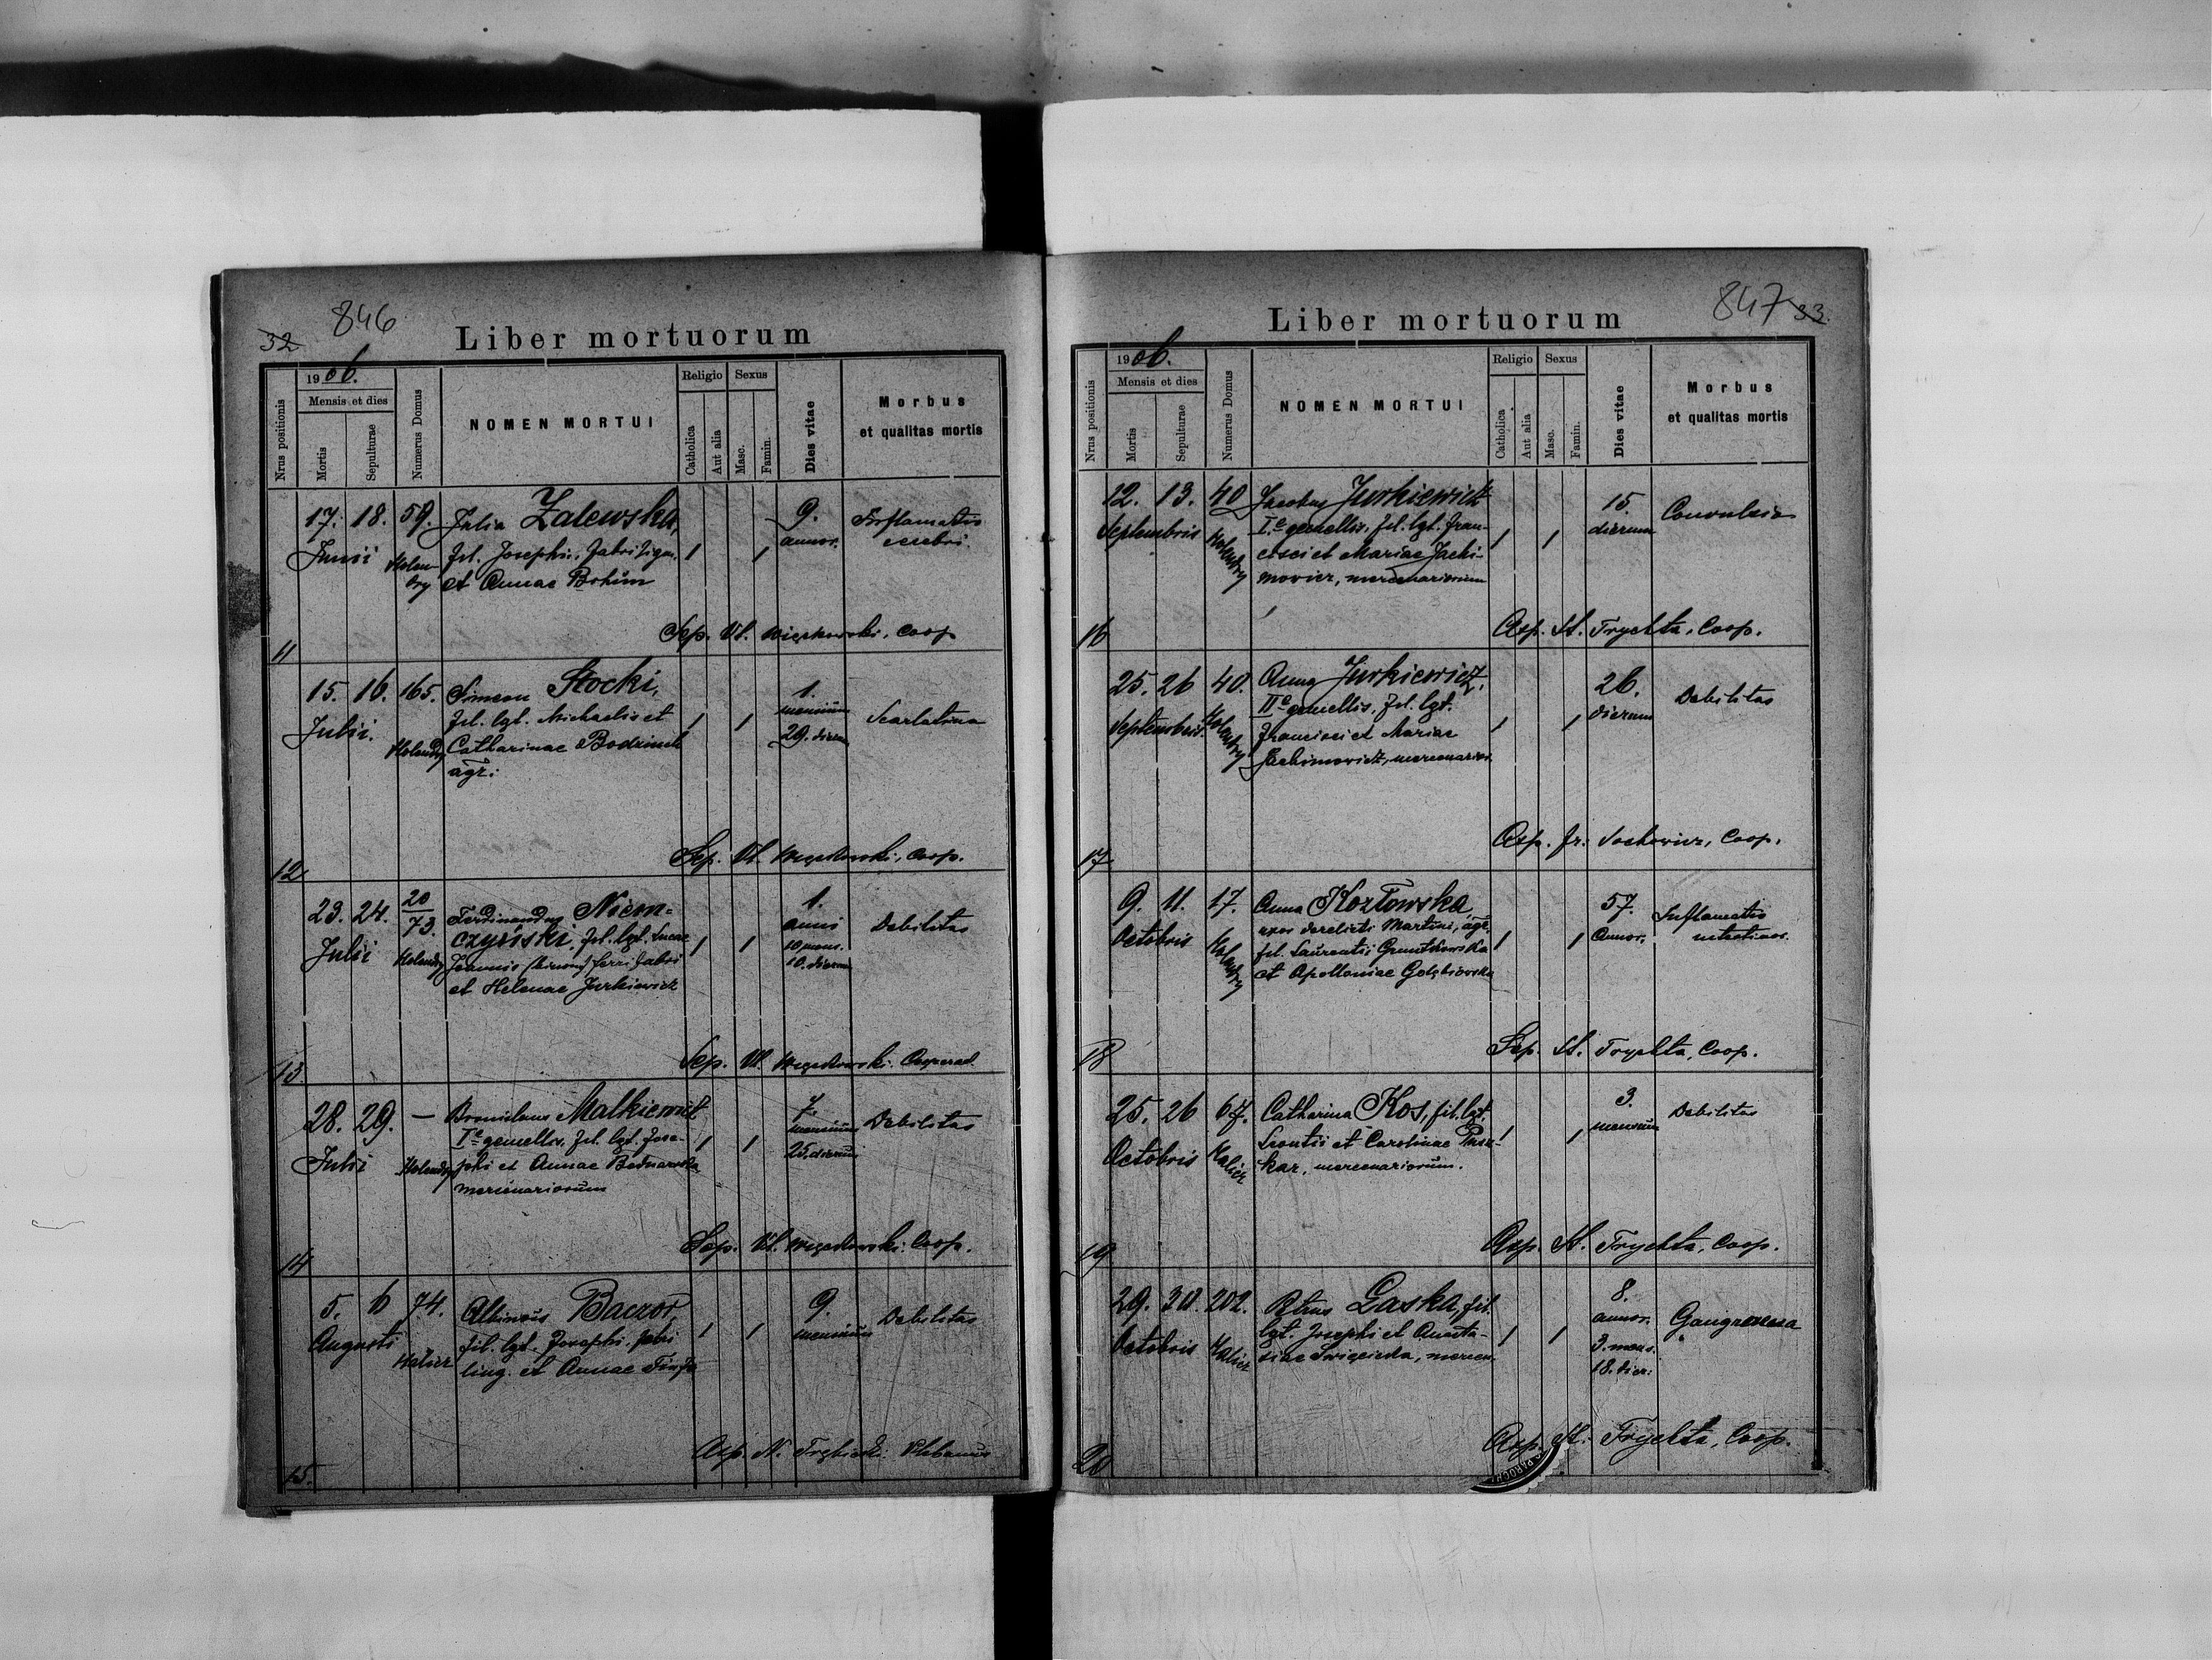 846
32
Liber mortuorum
Nrus positionis
1906.
Mensis et dies
Mortis
Sepulturae
Numerus Domus
NOMEN MORTUI
Religio
Catholica
Aut alia
Sexus
Masc.
Famin.
Dies vitae
Morbus
et qualitas mortis
17. 18. 59. Julia Zalewska, 9. Inflamatio
Junii Holendry fil. Josephi, fabri lign. 1 1 annor. cerebri.
et Annae Bohim
11 Sep. Vl. Coop
15. 16. 165. Simeon Stocki, 1. Scarlatina
Julii. Holendry fil. lgt. Michaelis et 1 1 mensium
Catharinae 29. dierum
agr:
12 Sep. Vl. Coop.
23. 24. 20/73. Ferdinandus Niem- 1. Debilitas
Julii Holendry czyński, fil. lgt. Lucae 1 1 anni
Joannis ferri fabri 10 mens.
et Helenae Jurkiewicz 10. dierum
13 Sep. Vl. Cooperat.
28. 29. — Bronislaus Malkiewicz 7. Debilitas
Julii Holendry I-e gemellis, fil. lgt. Jose- 1 1 mensium
phi et Annae Bednarska 25. dierum
mercenariorum
14 Sep. Vl. Coop.
5. 6 74. Albinus Baczor, 9. Debilitas
Augusti Halicz fil. lgt. Josephi, fabri 1 1 mensium
ling. et Annae
15. Asp. N. Plebanus
847 33.
Liber mortuorum
Nrus positionis
1906.
Mensis et dies
Mortis
Sepulturae
Numerus Domus
NOMEN MORTUI
Religio
Catholica
Aut alia
Sexus
Masc.
Famin.
Dies vitae
Morbus
et qualitas mortis
12. 13. 40 Jacobus Jurkiewicz 15. Convulsio
Septembris Holendry I-e gemellis, fil. lgt. Fran- 1 1 dierum
cisci et Mariae Jachi-
mowicz, mercenariorum
16 Asp. St. Trychta, Coop.
25. 26 40. Anna Jurkiewicz, 26. Debilitas
Septembris Holendry II-e gemellis, fil. lgt. 1 1 dierum
Francisci et Mariae
Jachimowicz, mercenarior.
17 Asp. Fr. Coop.
9. 11. 17. Anna Kozłowska, 57. Inflamatio
Octobris Holendry uxor derelicti Martini, agr. 1 1 Annor.
fil. Laurentii
et Apolloniae Gołębiowska
18 Sep. St. Trychta, Coop.
25. 26 67. Catharina Kos, fil. lgt. 3. Debilitas
Octobris Halicz Leontii et Carolinae 1 1 mensium
kar, mercenariorum.
19 Asp. St. Trychta, Coop.
29. 30. 202. Petrus Gaska, fil. 8. Gangraena
Octobris Halicz lgt. Josephi et Anasta- 1 1 annor.
siae mercen. 3. mens.
18. dier:
20 Asp. St. Trychta, Coop.
PAROCH